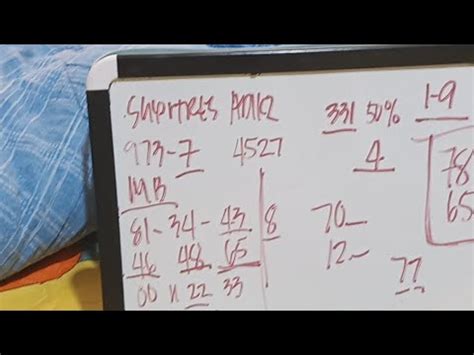 331 50% 1-9
973-7 4527 4 78
MB 65
81-34-43 8 70
46 48 65 12
00 n 22 33 77